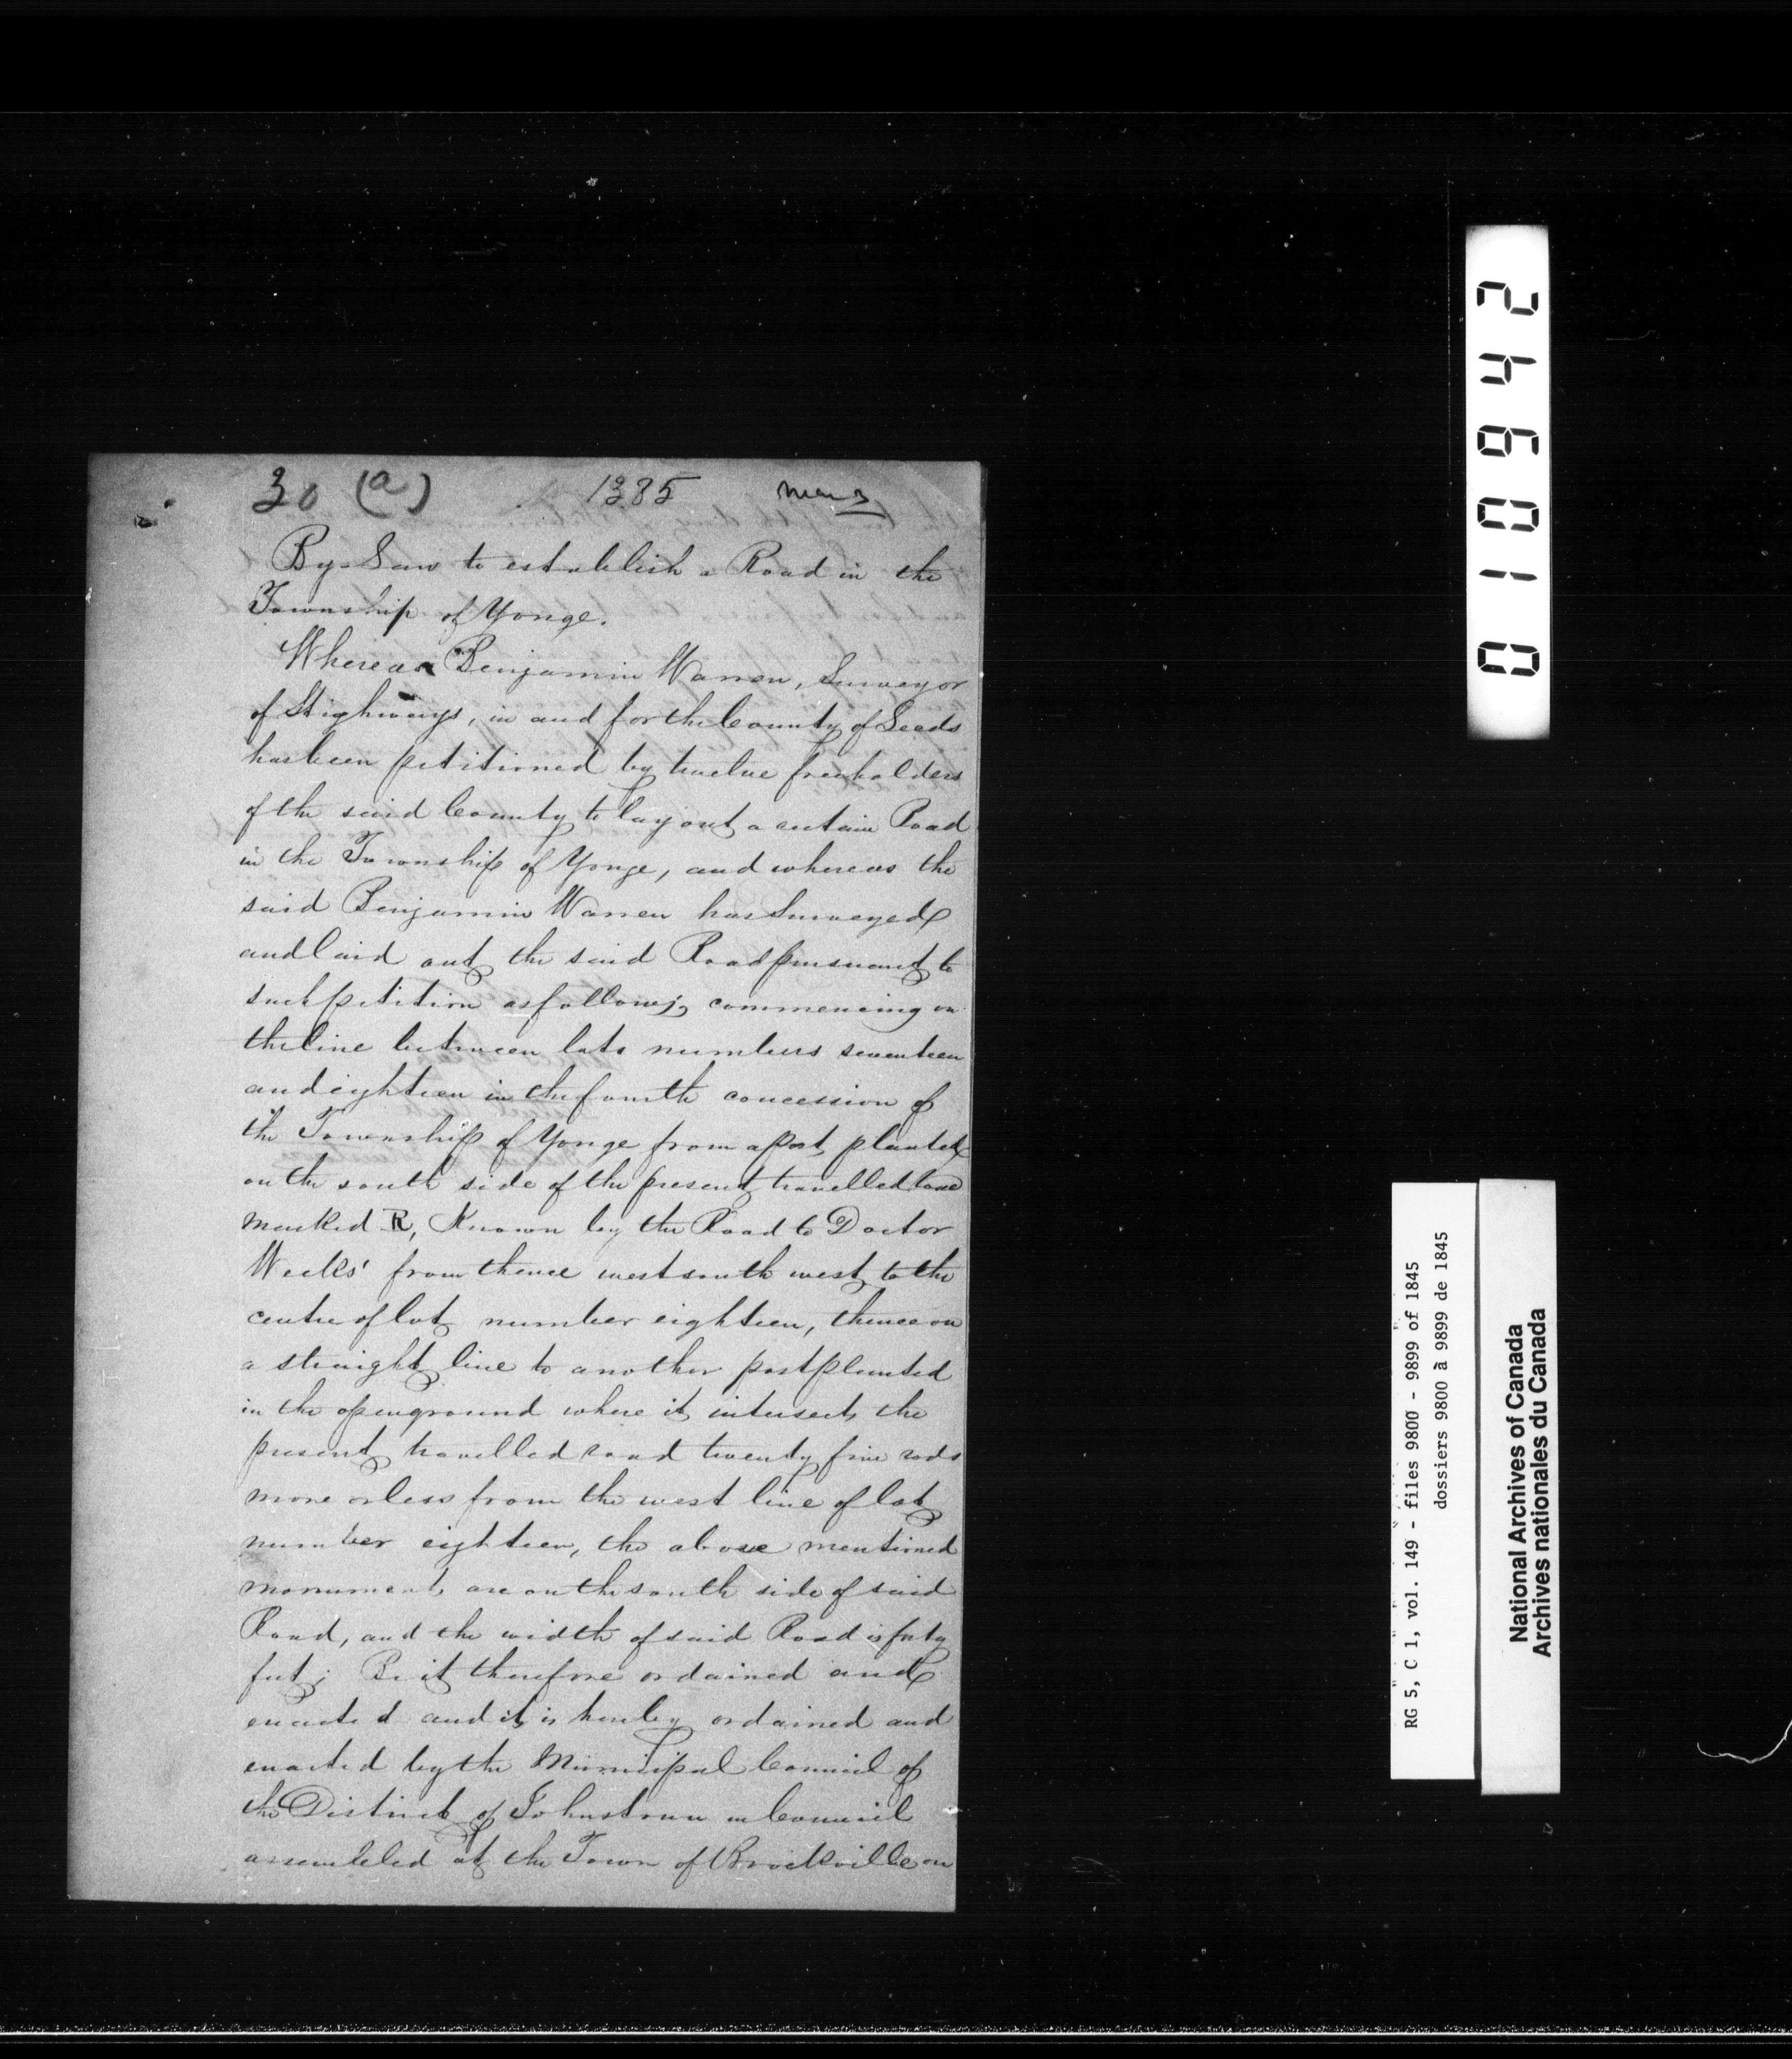 30 (a) 1385
By-Law to establish a Road in the
Township of Yonge.
Whereas Benjamin Warren, Surveyor
of Highways, in and for the County of Leeds
has been petitioned by twelve freeholders
of the said County to lay out a certain Road
in the Township of Yonge, and whereas the
said Benjamin Warren has Surveyed
and laid out the said Road pursuant to
such petition as follows; commencing on
the line between lots numbers seventeen
and eighteen in the fourth concession of
the Township of Yonge from a post planted
on the south side of the present travelled road
marked R, Known by the Road to Doctor
Weeks' from thence west south west to the
centre of lot number eighteen, thence on
a straight line to another post planted
in the open ground where it intersects the
present travelled road twenty five rods
more or less from the west line of lot
number eighteen, the above mentioned
monuments are on the south side of said
Road, and the width of said Road is forty
feet; Be it therefore ordained and
enacted and it is hereby ordained and
enacted by the Municipal Council of
the District of Johnstown in Council
assembled at the Town of Brockville on
010942
RG 5, C 1, vol. 149 - files 9800 - 9899 of 1845
dossiers 9800 à 9899 de 1845
National Archives of Canada
Archives nationales du Canada